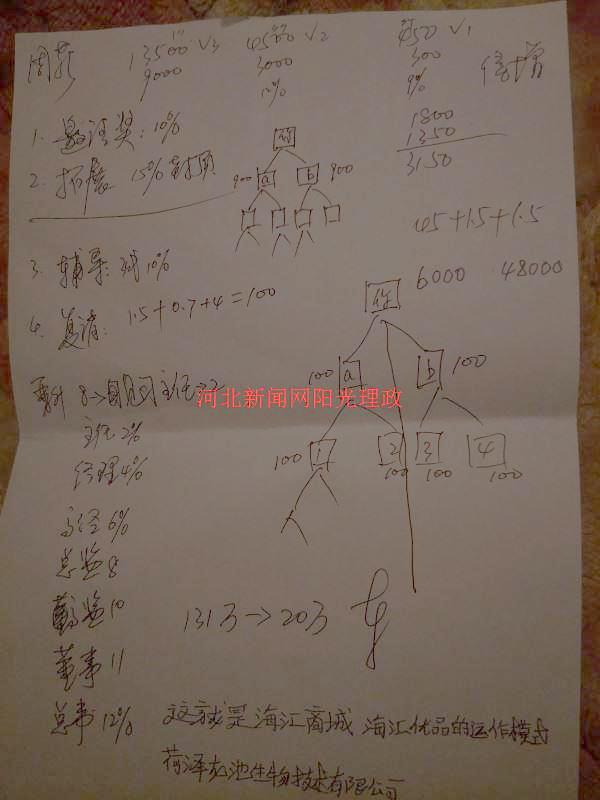 周薪 13500 V3 4500 V2 450 V1
9000 3000 300 倍增
12% 9%
1. 邀请奖: 10%
1800
1350
3150
2. 拓展 15% 封顶
你
900 a b 900
45+1.5+1.5
3. 辅导: 10%
6000 48000
你
4. 复消: 1.5+0.7+4=100
100 a b 100
8→ 主任
河北新闻网阳光理政
主任2%
100 1 2 3 4
100 100 100
经理4%
高经6%
总监8
高监10
131万→20万
董事11
总董12%
这就是海汇商城 海汇优品的运作模式
菏泽 池生物技术有限公司